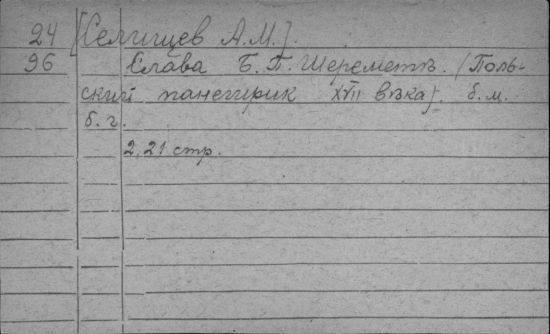 24 [Селищев А.М.].
96 Слава Б. П. Шереметъ. (Поль-
ский панегирик XVII вѣка). б. м.
б. г.
2, 21 стр.